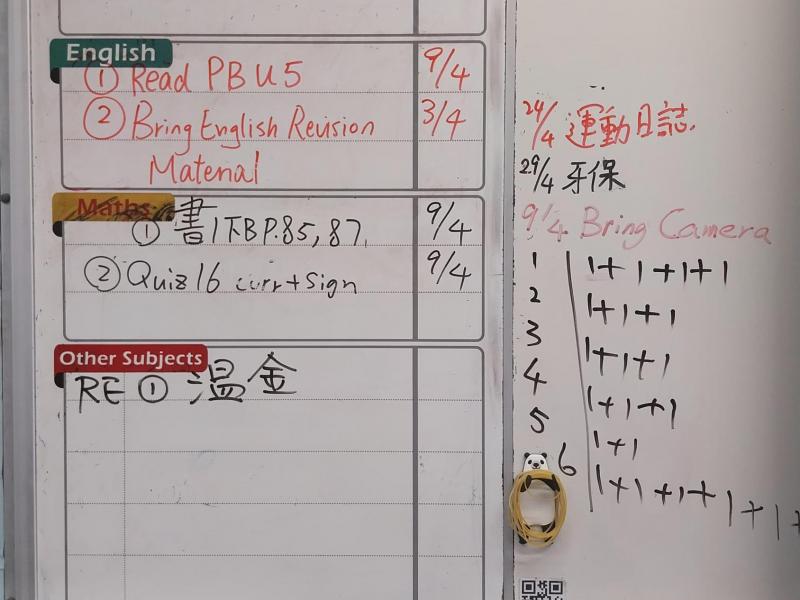 English
① Read PB U5 9/4
② Bring English Revision 3/4
Material
Maths
① 書1下B P.85, 87. 9/4
② Quiz 16 corr + Sign 9/4
Other Subjects
RE ① 温金
24/4 運動日誌.
29/4 牙保
9/4 Bring Camera
1 1+1+1+1
2 1+1+1
3 1+1+1
4 1+1+1
5 1+1
6 1+1+1+1+1+